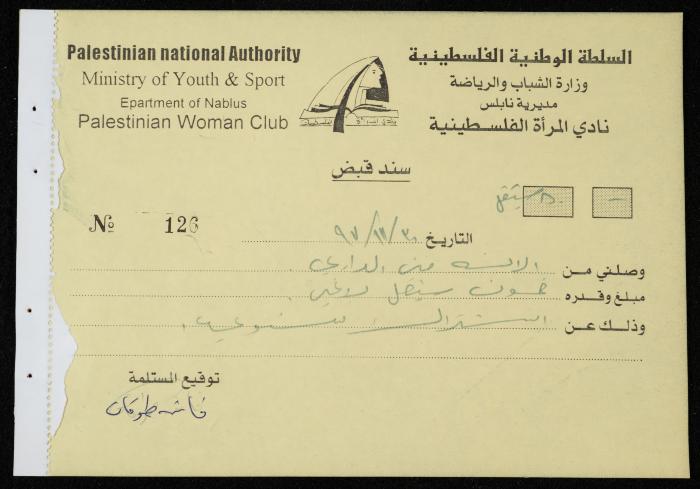 Palestinian national Authority
Ministry of Youth & Sport
Epartment of Nablus
Palestinian Woman Club
السلطة الوطنية الفلسطينية
وزارة الشباب والرياضة
مديرية نابلس
نادي المرأة الفلسطينية
سند قبض
№ 126
التاريخ ٩٧/١٢/٣٠
وصلني من الانسه منى
مبلغ وقدره خمسون شيقل لاغير.
وذلك عن اشتراك سنوي.
توقيع المستلمة
طوقان